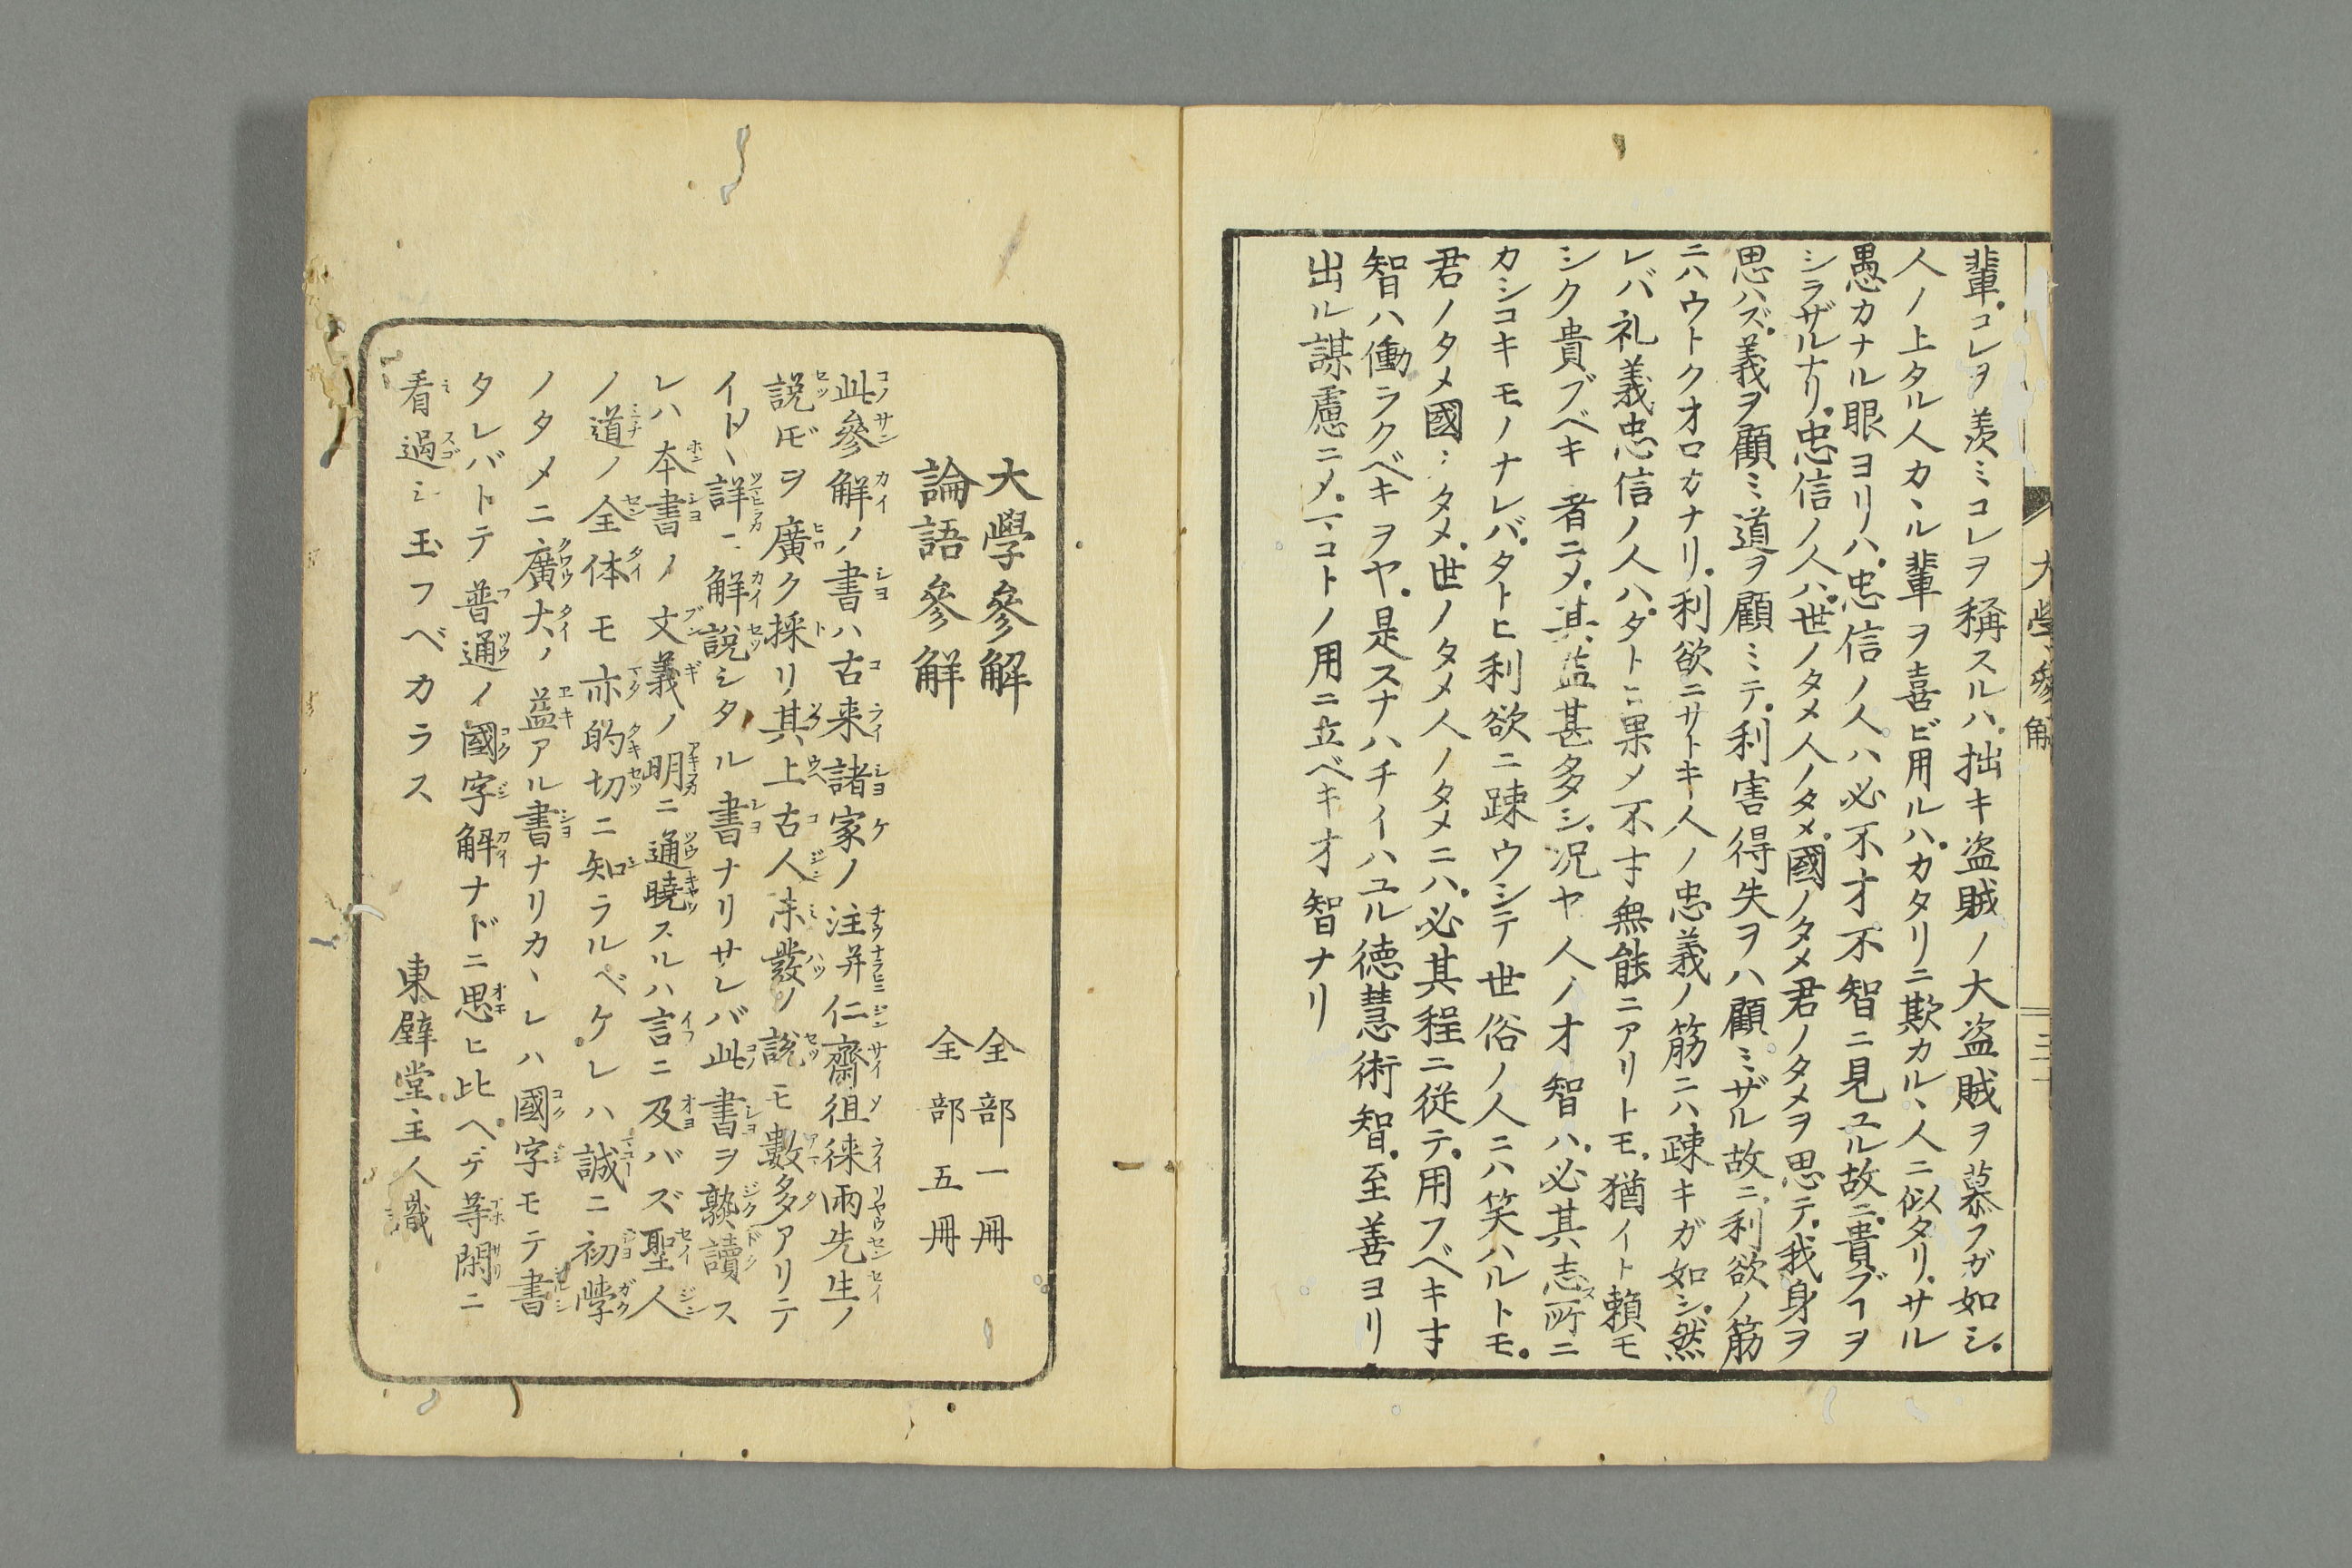 輩。コレヲ羨ミコレヲ稱スルハ。拙キ盗賊ノ大盗賊ヲ慕フガ如シ。
人ノ上タル人カヽル輩ヲ喜ビ用ルハ。カタリニ欺カルヽ人ニ似タリ。サル
愚カナル眼ヨリハ。忠信ノ人ハ必不才不智ニ見ユル故ニ。貴ブヿヲ
シラザルナリ。忠信ノ人ハ。世ノタメ人ノタメ。國ノタメ君ノタメヲ思テ。我身ヲ
思ハズ。義ヲ顧ミ道ヲ顧ミテ。利害得失ヲハ顧ミザル故ニ。利欲ノ筋
ニハウトクオロカナリ。利欲ニサトキ人ノ忠義ノ筋ニハ疎キガ如シ。然
レバ礼義忠信ノ人ハ。タトヒ果メ不才無能ニアリトモ。猶イト頼モ
シク貴ブベキ者ニメ。其益甚多シ。况ヤ人ノ才智ハ。必其志ス所ニ
カシコキモノナレバ。タトヒ利欲ニ踈ウシテ世俗ノ人ニハ笑ハルトモ。
君ノタメ國ニタメ。世ノタメ人ノタメニハ。必其程ニ従テ。用フベキ才
智ハ働ラクベキヲヤ。是スナハチイハユル徳慧術智。至善ヨリ
出ル謀慮ニメ。コトノ用ニ立ベキオ智ナリ
大學參解
大學參解　全部一冊
論語參解　全部五冊
此參解ノ書ハ古来諸家ノ注并仁齋徂徠兩先生ノ
説𪜈ヲ廣ク採リ其上古人未發ノ說モ數多アリテ
イトヽ詳ニ解說シタル書ナリサレバ此書ヲ熟讀ス
レハ本書ノ文義ノ明ニ通曉スルハ言ニ及バズ聖人
ノ道ノ全体モ亦的切ニ知ラルベケレハ誠ニ初學
ノタメニ廣大ノ益アル書ナリカヽレハ國字モテ書
タレバトテ普通ノ國字解ナドニ思ヒ比ヘデ等閑ニ
看過シ玉フベカラス
東壁堂主人識